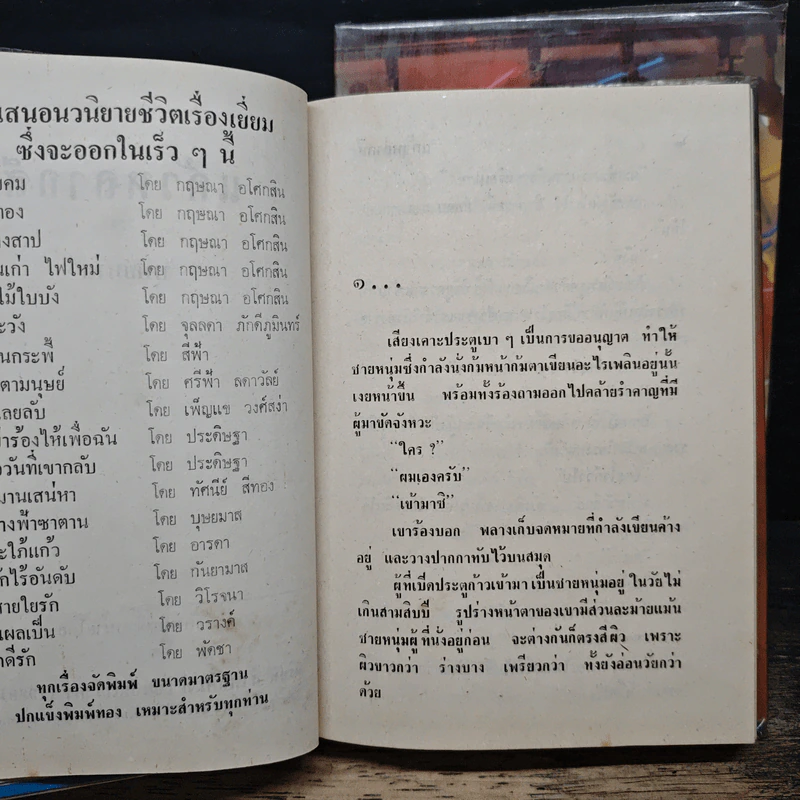 สนอนวนิยายชีวิตเรื่องเยี่ยม
ซึ่งจะออกในเร็ว ๆ นี้
โดย กฤษณา อโศกสิน
โดย กฤษณา อโศกสิน
โดย กฤษณา อโศกสิน
เก่า ไฟใหม่ โดย กฤษณา อโศกสิน
ใบบัง โดย กฤษณา อโศกสิน
โดย จุลลดา ภักดีภูมินทร์
โดย สีฟ้า
ตามนุษย์ โดย ศรีฟ้า ลดาวัลย์
โดย เพ็ญแข วงศ์สง่า
ร้องไห้เพื่อฉัน โดย ประดิษฐา
วันที่เขากลับ โดย ประดิษฐา
มานเสน่หา โดย ทัศนีย์ สีทอง
ฟ้าซาตาน โดย บุษยมาส
โดย อารดา
ไร้อันดับ โดย ทันยามาส
สายใยรัก โดย วิโรจนา
แผลเป็น โดย วรางค์
โดย พัดชา
ทุกเรื่องจัดพิมพ์ ขนาดมาตรฐาน
ปกแข็งพิมพ์ทอง เหมาะสำหรับทุกท่าน
๑...
เสียงเคาะประตูเบา ๆ เป็นการขออนุญาต ทำให้
ชายหนุ่มซึ่งกำลังนั่งก้มหน้าก้มตาเขียนอะไรเพลินอยู่นั้น
เงยหน้าขึ้น พร้อมทั้งร้องถามออกไปคล้ายรำคาญที่มี
ผู้มาขัดจังหวะ
“ใคร ?”
“ผมเองครับ”
“เข้ามาซิ”
เขาร้องบอก พลางเก็บจดหมายที่กำลังเขียนค้าง
อยู่ และวางปากกาทับไว้บนสมุด
ผู้ที่เปิดประตูก้าวเข้ามา เป็นชายหนุ่มอยู่ ในวัยไม่
เกินสามสิบปี รูปร่างหน้าตาของเขามีส่วนละม้ายแม้น
ชายหนุ่มผู้ ที่นั่งอยู่ก่อน จะต่างกันก็ตรงสีผิว เพราะ
ผิวขาวกว่า ร่างบาง เพรียวกว่า ทั้งยังอ่อนวัยกว่า
ด้วย